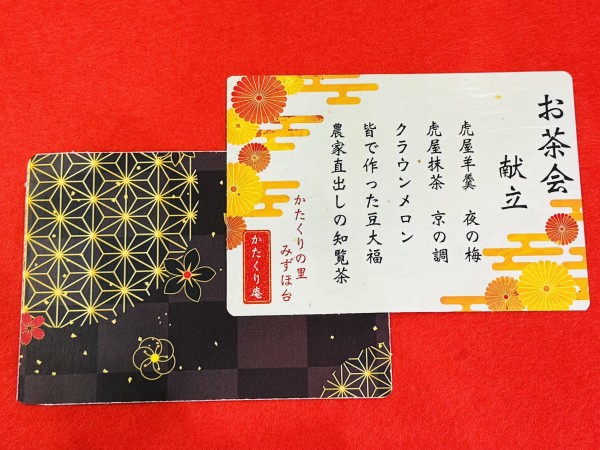 お茶会
献立
虎屋羊羹　夜の梅
虎屋抹茶　京の調
クラウンメロン
皆で作った豆大福
農家直出しの知覧茶
かたくりの里
みずほ台
かたくり庵